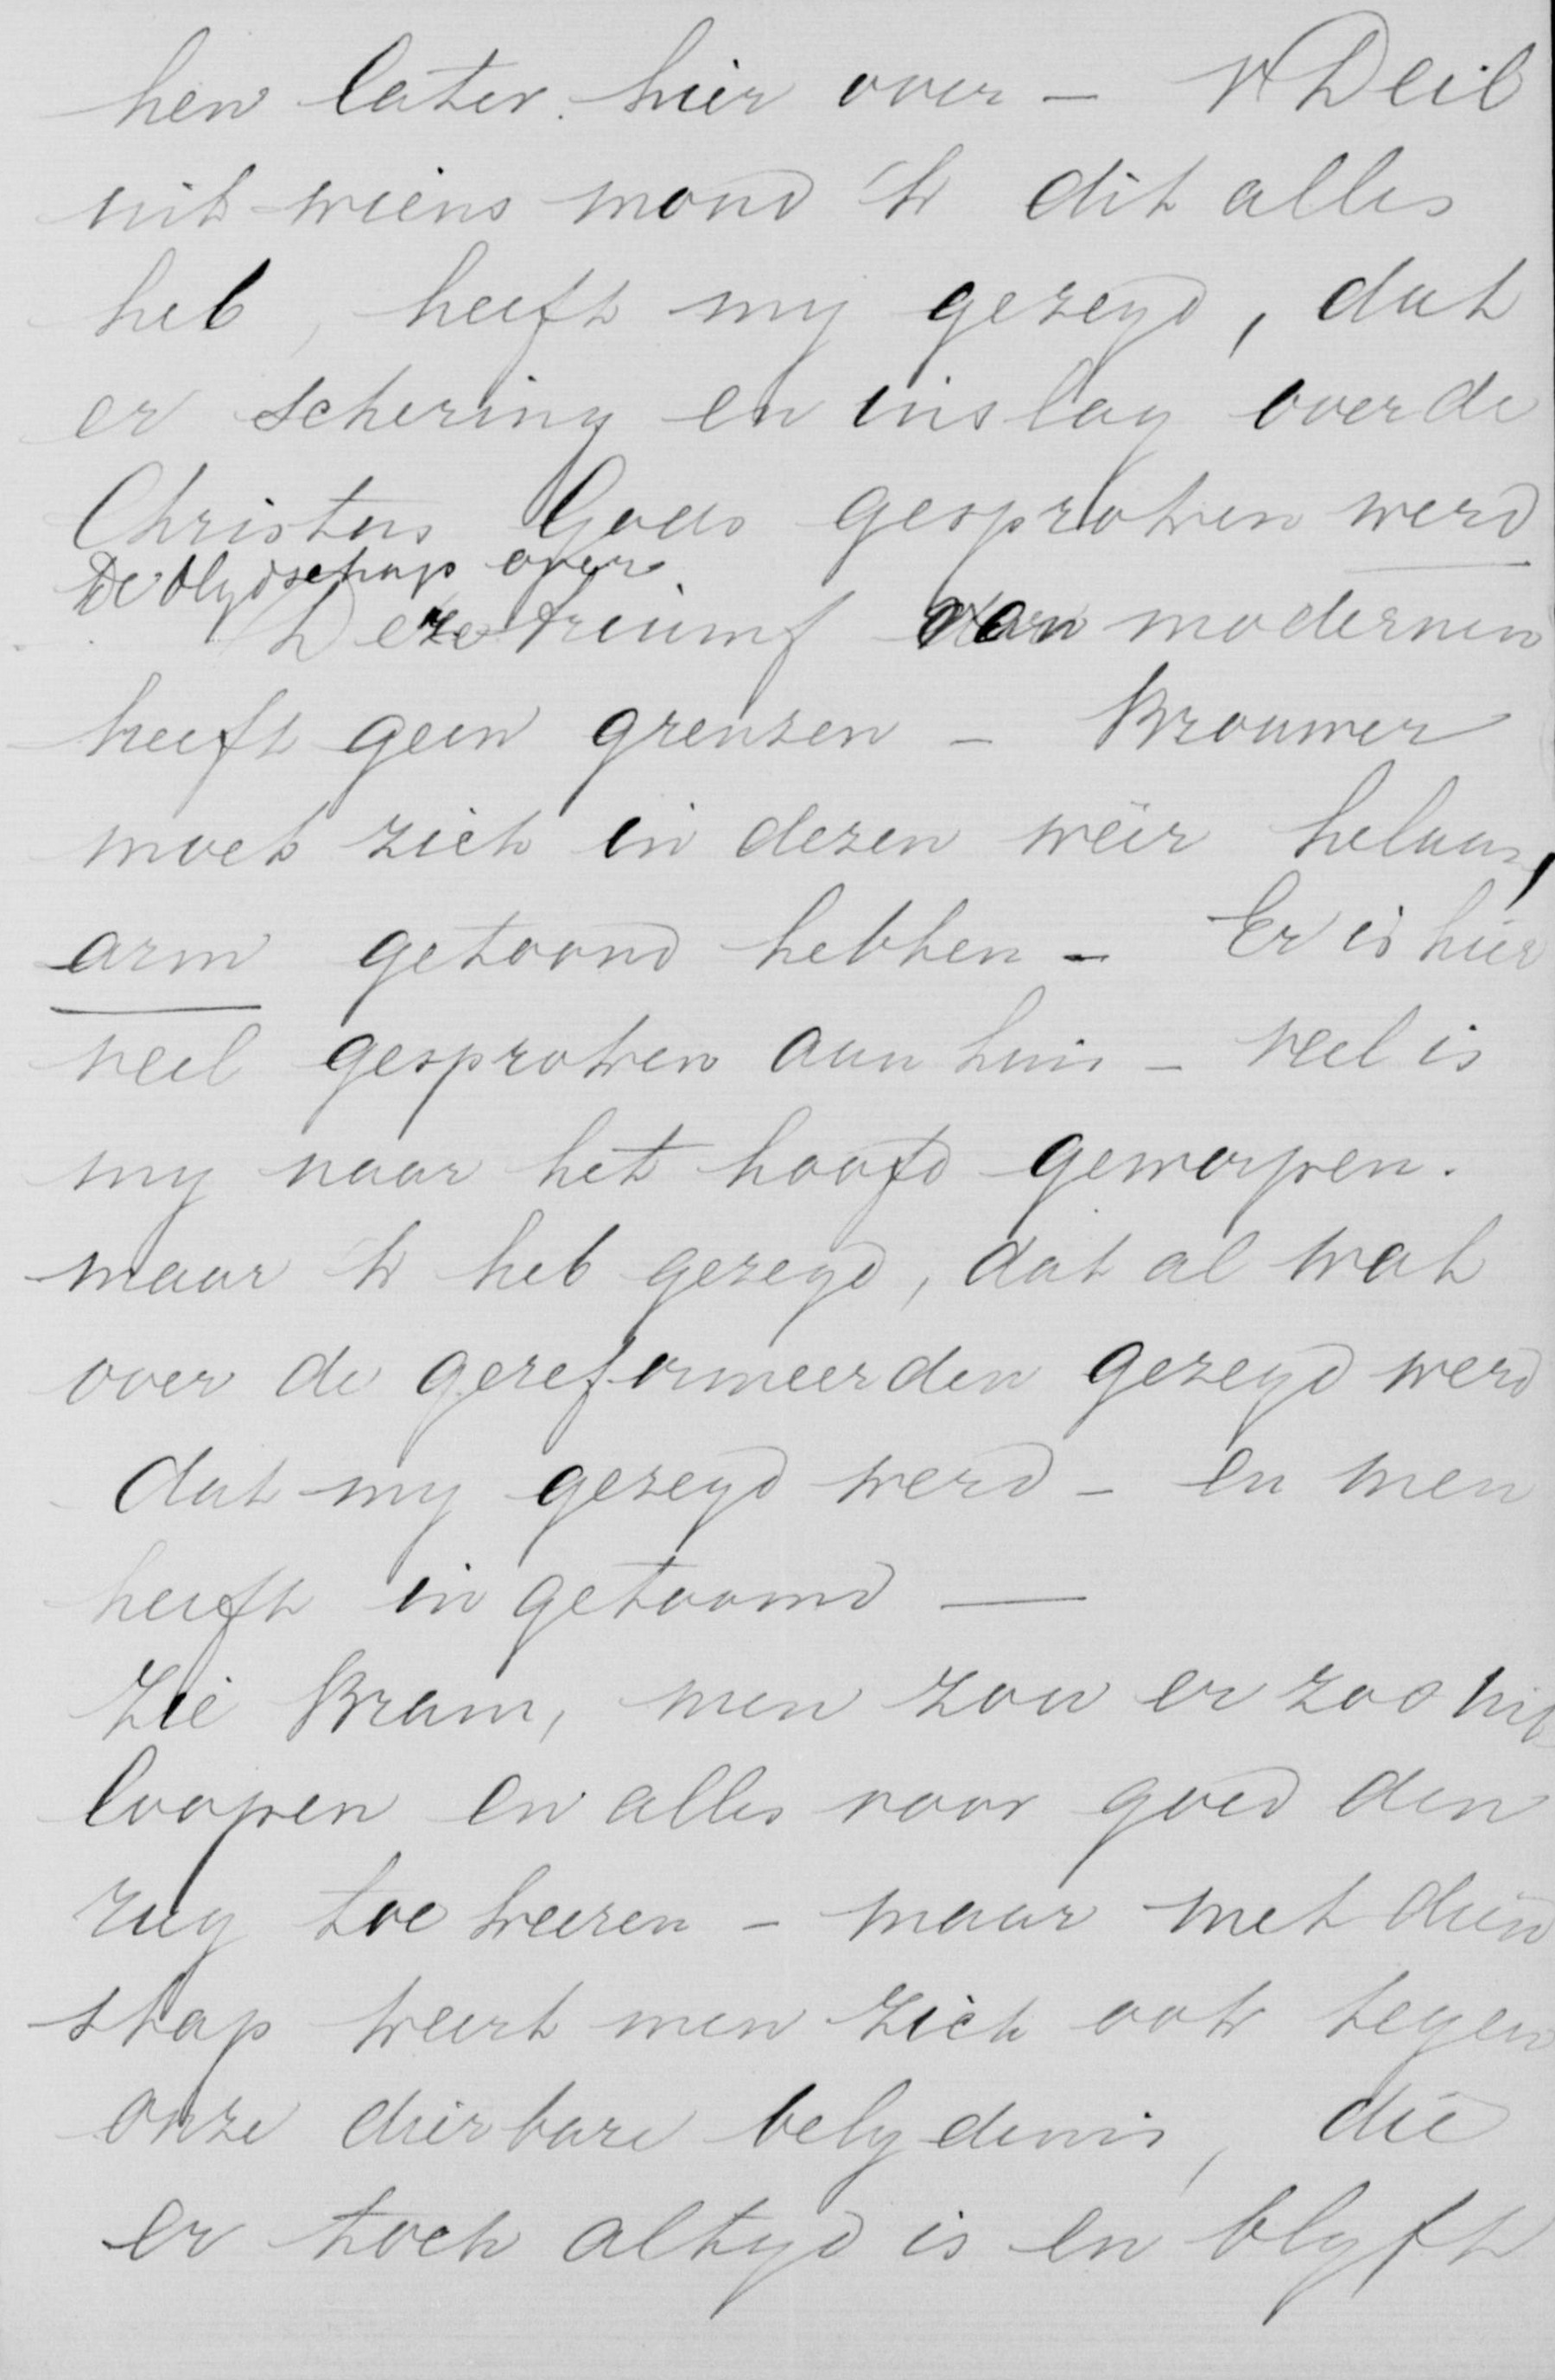 hen later hier over – v Deil
uit wiens mond 'k dit alles
heb, heeft my gezegd, dat
er schering en inslag over de
Christus Gods gesproken werd
De blydschap over
Deze triumf van modernen
heeft geen grenzen – Brouwer
moet zich in dezen wéér helaas,
arm getoond hebben – Er is hier
veel gesproken aan huis – veel is
my naar het hoofd geworpen.
maar 'k heb gezegd, dat al wat
over de gereformeerden gezegd werd
dat my gezegd werd – en men
heeft ingetoomd —
Zie Bram, men zou er zoo uit
loopen en alles voor goed den
rug toe keeren – maar met dien
stap keert men zich ook tegen
onze dierbare belydenis, die
er toch altyd is en blyft